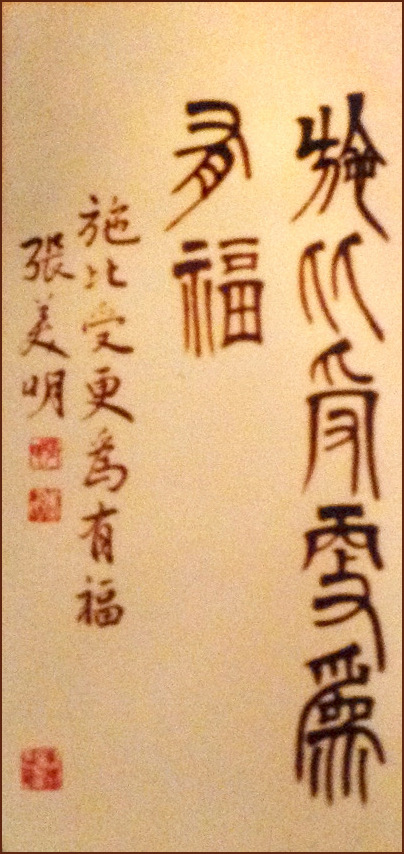 施比受更為
有福
施比受更為有福
張美明